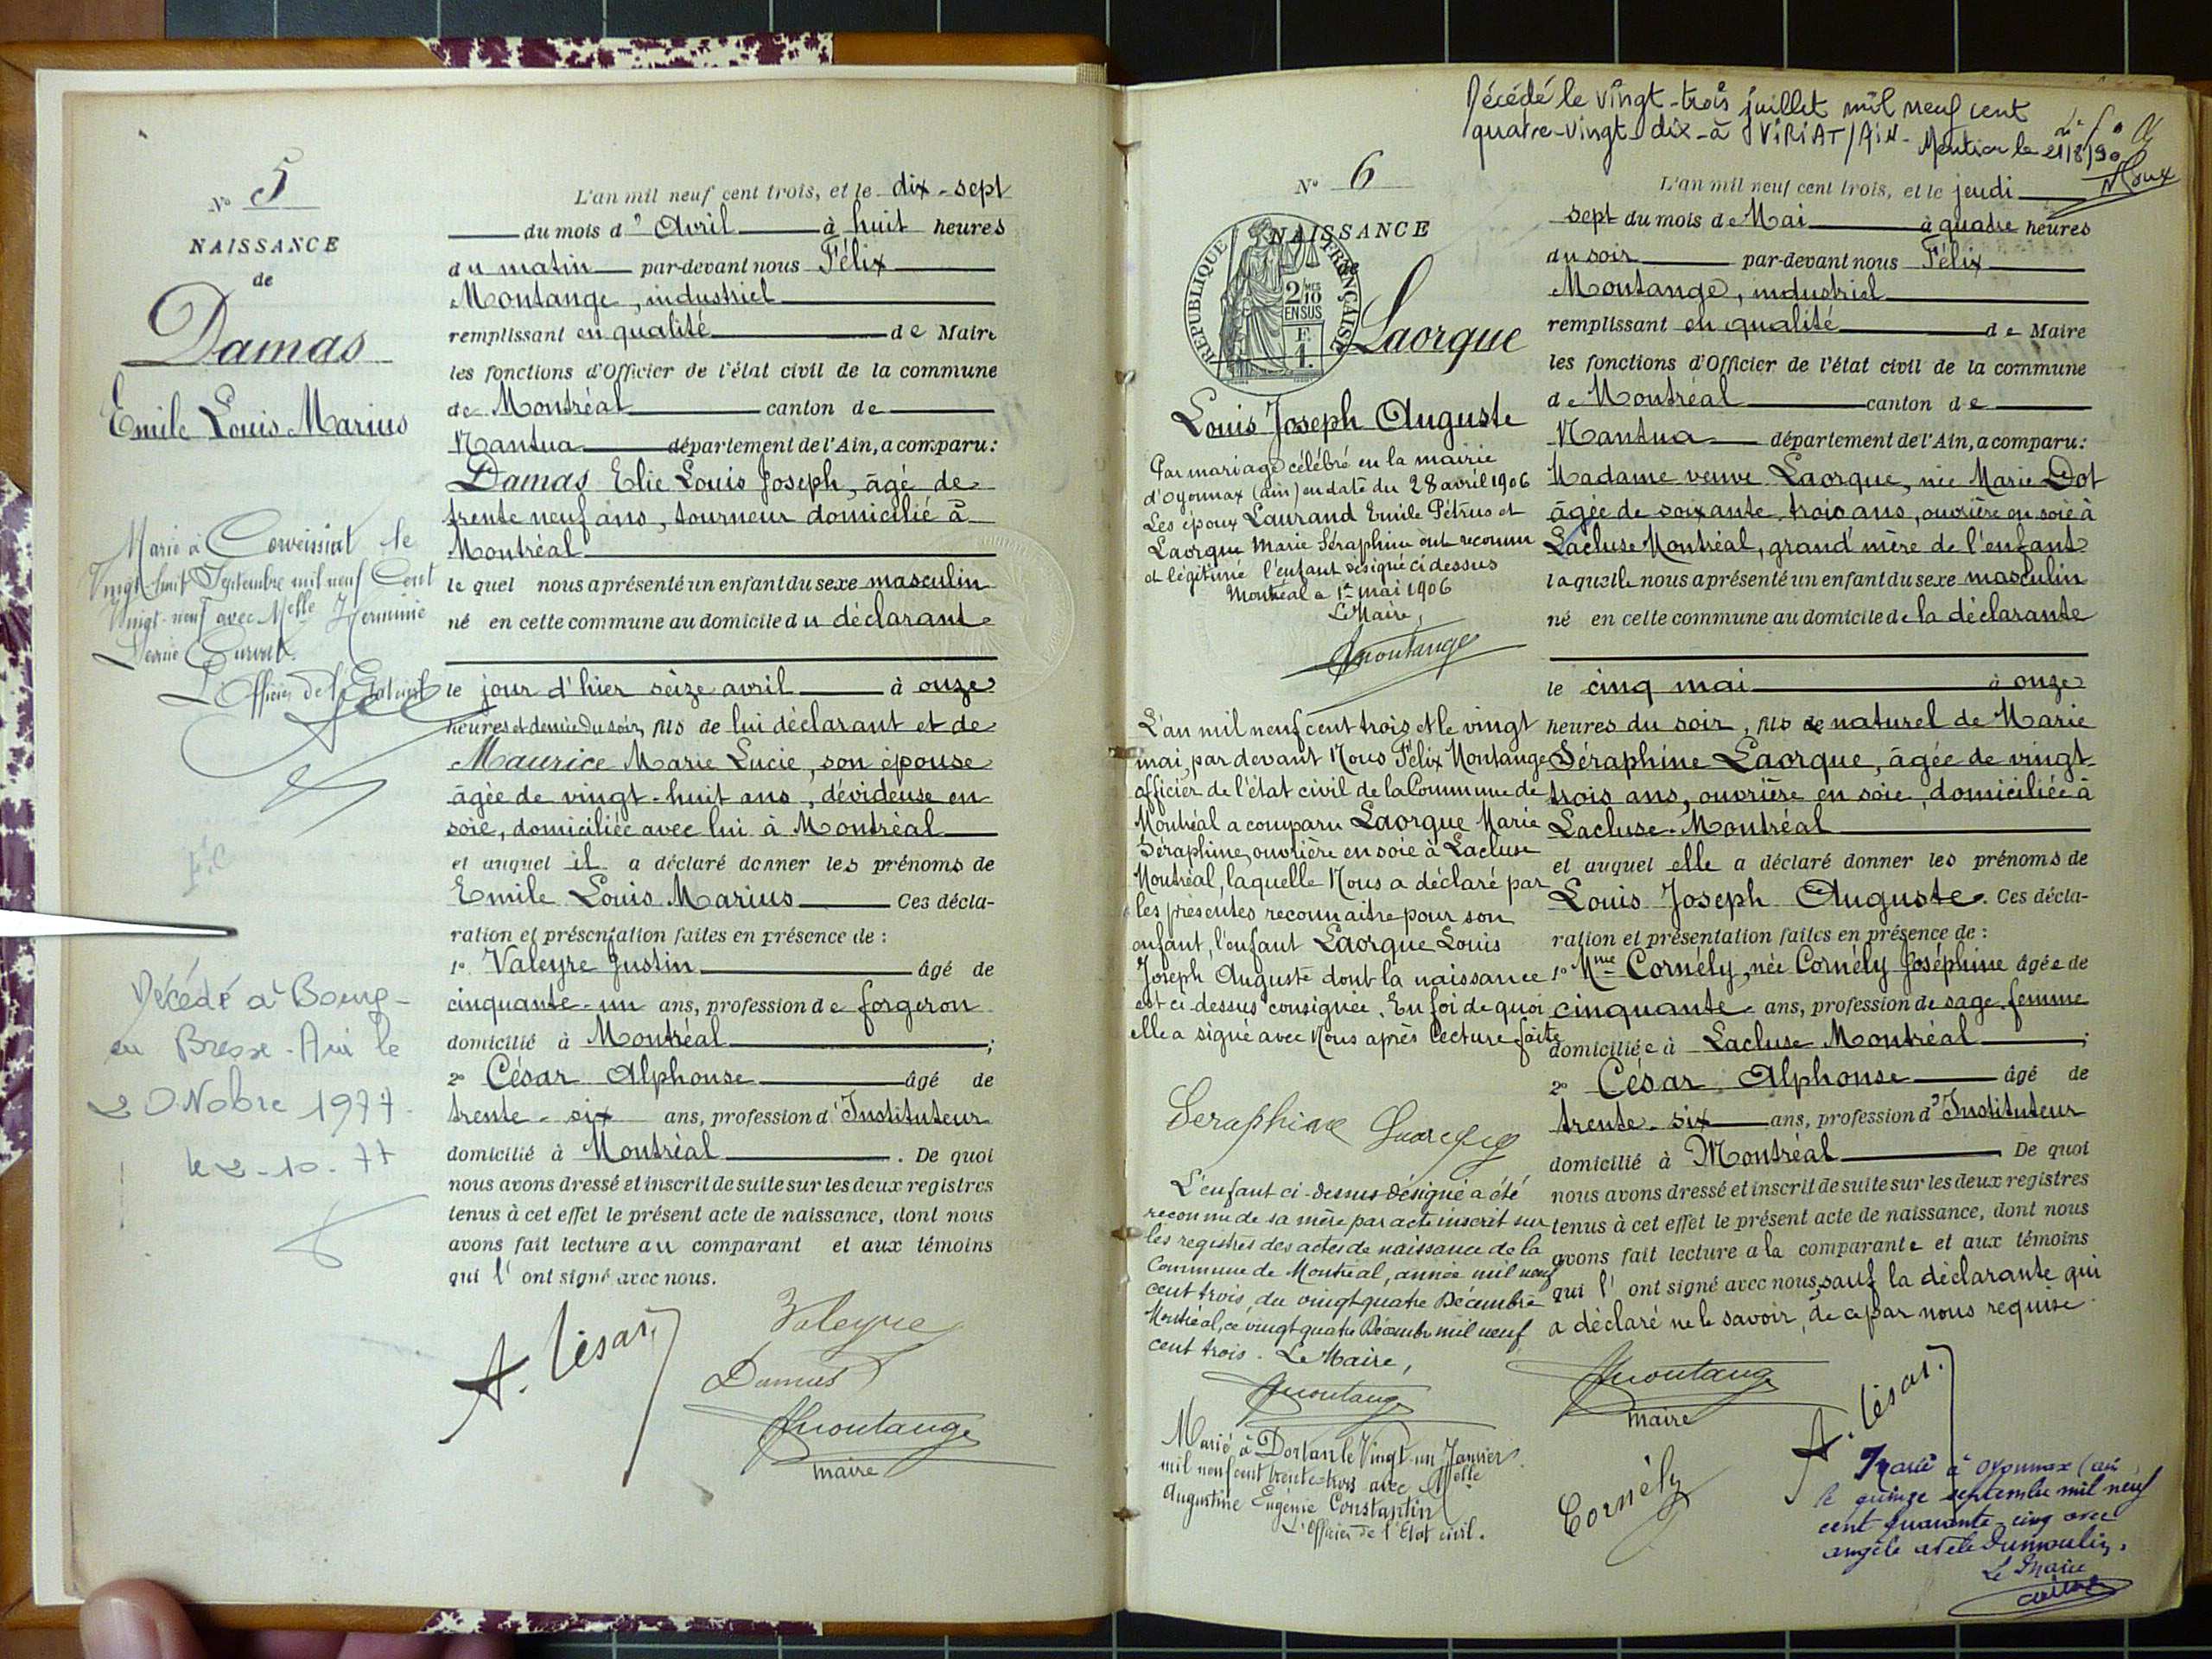 N° 5
NAISSANCE
de
Damas
Emile Louis Marius
Marié à le
Vingt huit Septembre mil neuf Cent
Vingt-neuf avec Melle Herminie
L'Officier de l'Etat civil
Décédé à Bourg-
en Bresse - Ain le
1977.
le 2-10-77
L'an mil neuf cent trois, et le dix-sept
du mois d' Avril à huit heures
du matin par-devant nous Félix
Montange, industriel
remplissant en qualité de Maire
les fonctions d'Officier de l'état civil de la commune
de Montréal canton de
Nantua département de l'Ain, a comparu:
Damas Elie Louis Joseph, âgé de
trente neuf ans, tourneur domicilié à
Montréal
le quel nous a présenté un enfant du sexe masculin
né en cette commune au domicile du déclarant
le jour d'hier seize avril à onze
heures et demie du soir, fils de lui déclarant et de
Maurice Marie Lucie, son épouse
âgée de vingt-huit ans, dévideuse en
soie, domiciliée avec lui à Montréal
et auquel il a déclaré donner les prénoms de
Emile Louis Marius Ces décla-
ration et présentation faites en présence de :
1° Valeyre Justin âgé de
cinquante-un ans, profession de forgeron
domicilié à Montréal ;
2° César Alphonse âgé de
trente-six ans, profession d'Instituteur
domicilié à Montréal . De quoi
nous avons dressé et inscrit de suite sur les deux registres
tenus à cet effet le présent acte de naissance, dont nous
avons fait lecture au comparant et aux témoins
qui l' ont signé avec nous.
A. César
Valeyre
Damas
Montange
maire
Décédé le vingt-trois juillet mil neuf cent
quatre-vingt-dix-à VIRIAT/AIN- Mention le 21/8/90
N° 6
NAISSANCE
de
REPUBLIQUE FRANÇAISE
2/10 MES
EN SUS
F.
1.
Laorque
Louis Joseph Auguste
Par mariage célébré en la mairie
d'Oyonnax (ain) en date du 28 avril 1906
Les époux Laurand Emile Pétrus et
Laorque Marie Séraphine ont reconnu
et légitimé l'enfant désigné ci dessus
Montréal le 1er mai 1906
Le Maire,
Montange
L'an mil neuf cent trois et le vingt
mai, par devant Nous Félix Montange
officier de l'état civil de la Commune de
Montréal a comparu Laorque Marie
Séraphine, ouvrière en soie à Lacluse
Montréal, laquelle Nous a déclaré par
les présentes reconnaitre pour son
enfant, l'enfant Laorque Louis
Joseph Auguste dont la naissance
est ci-dessus consignée. En foi de quoi
elle a signé avec Nous après lecture faite
Seraphine Laorque
L'enfant ci-dessus désigné a été
reconnu de sa mère par acte inscrit sur
les registres des actes de naissance de la
Commune de Montréal, année mil neuf
cent trois, du vingt quatre Décembre
Montréal, ce vingt quatre Décembre mil neuf
cent trois. Le Maire,
Montange
Marié à Dortan le Vingt-un Janvier
mil neuf cent trente-trois avec Melle
Augustine Eugénie Constantin
L'Officier de l'Etat civil.
L'an mil neuf cent trois, et le jeudi
sept du mois de Mai à quatre heures
du soir par-devant nous Félix
Montange, industriel
remplissant en qualité de Maire
les fonctions d'Officier de l'état civil de la commune
de Montréal canton de
Nantua département de l'Ain, a comparu:
Madame veuve Laorque, née Marie Dot
âgée de soixante trois ans, ouvrière en soie à
Lacluse Montréal, grand'mère de l'enfant
laquelle nous a présenté un enfant du sexe masculin
né en cette commune au domicile de la déclarante
le cinq mai à onze
heures du soir, fils de naturel de Marie
Séraphine Laorque, âgée de vingt-
trois ans, ouvrière en soie, domiciliée à
Lacluse-Montréal
et auquel elle a déclaré donner les prénoms de
Louis Joseph Auguste. Ces décla-
ration et présentation faites en présence de :
1° Mme Cornély, née Cornély Joséphine âgée de
cinquante ans, profession de sage-femme
domiciliée à Lacluse Montréal ;
2° César Alphonse âgé de
trente-six ans, profession d'Instituteur
domicilié à Montréal De quoi
nous avons dressé et inscrit de suite sur les deux registres
tenus à cet effet le présent acte de naissance, dont nous
avons fait lecture à la comparante et aux témoins
qui l' ont signé avec nous, sauf la déclarante qui
a déclaré ne le savoir, de ce par nous requise
Montange
maire
A. César
Cornély
Marié à Oyonnax (ain
le quinze septembre mil neuf
cent quarante-cinq avec
angèle adèle Dumoulin.
Le Maire